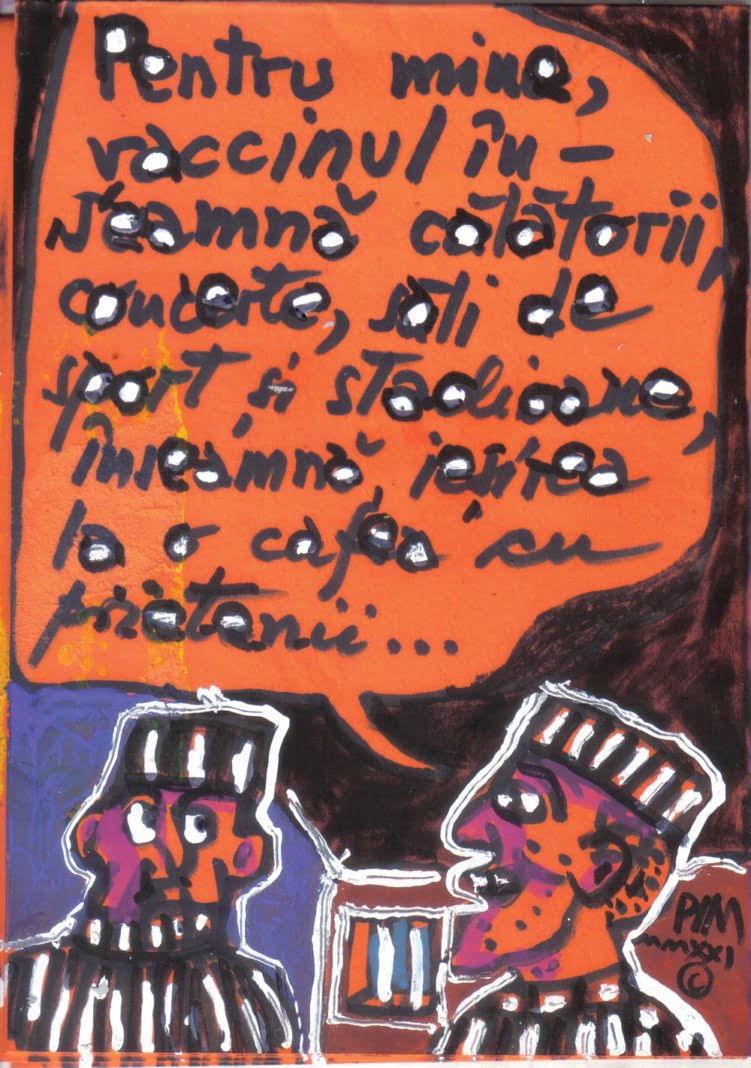 Pentru mine,
vaccinul în-
seamnă călătorii,
concerte, săli de
sport și stadioane,
înseamnă ieșirea
la o cafea cu
prietenii...
PYM
MMXXI
©